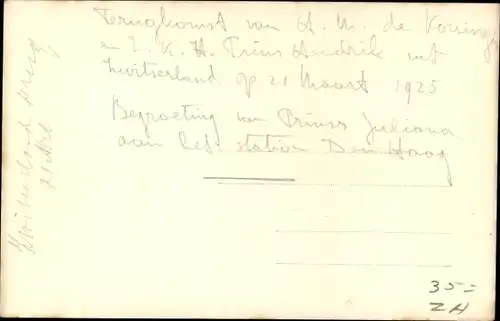 Terugkomst van H. M. de Koningin
en Z. K. H. Prins Hendrik uit
Zwitserland op 21 Maart 1925
Begroeting van Prinses Juliana
aan het station Den Haag
Zwitserland terug
21 Mrt
35=
ZH